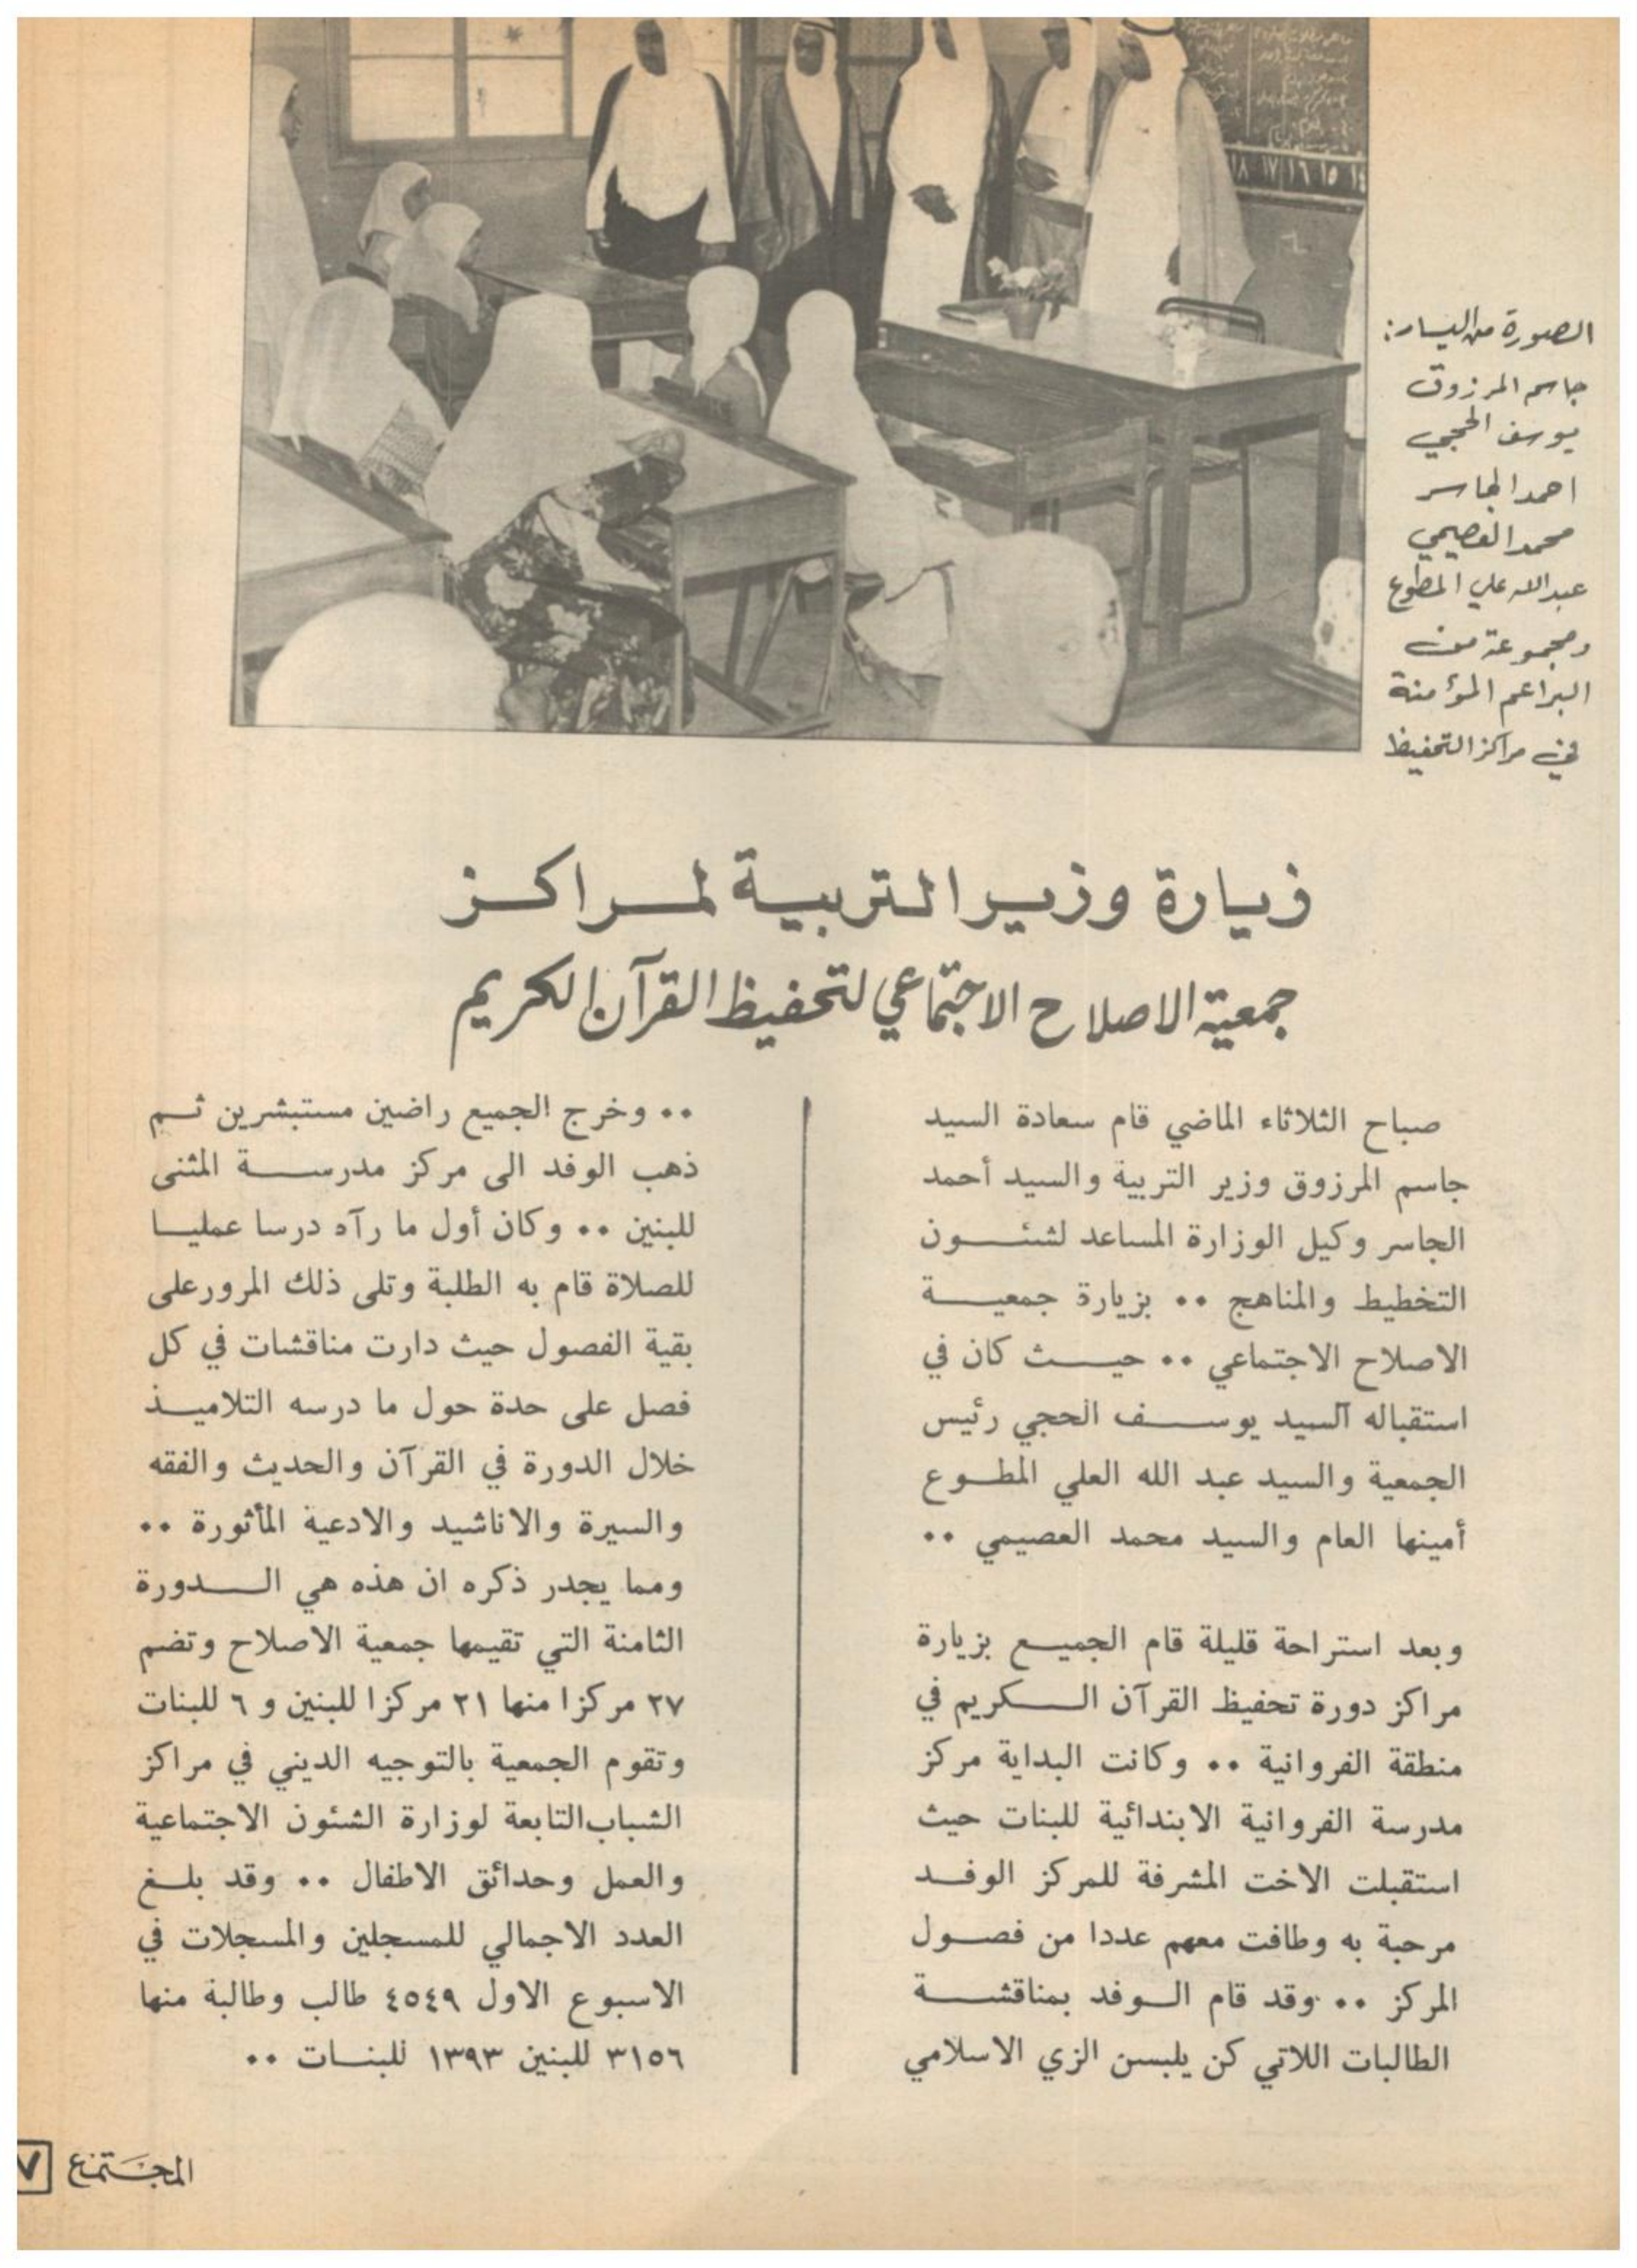 ١٨ ١٧ ١٦ ١٥ ١٤
الصورة من اليسار:
جاسم المرزوق
يوسف الحجي
احمد الجاسر
محمد العصيمي
عبدالله علي المطوع
ومجموعة من
البراعم المؤمنة
في مراكز التحفيظ
زيارة وزير التربية لمراكز
جمعية الاصلاح الاجتماعي لتحفيظ القرآن الكريم
صباح الثلاثاء الماضي قام سعادة السيد
جاسم المرزوق وزير التربية والسيد أحمد
الجاسر وكيل الوزارة المساعد لشئون
التخطيط والمناهج .. بزيارة جمعية
الاصلاح الاجتماعي .. حيث كان في
استقباله السيد يوسف الحجي رئيس
الجمعية والسيد عبد الله العلي المطوع
أمينها العام والسيد محمد العصيمي ..
وبعد استراحة قليلة قام الجميع بزيارة
مراكز دورة تحفيظ القرآن الكريم في
منطقة الفروانية .. وكانت البداية مركز
مدرسة الفروانية الابتدائية للبنات حيث
استقبلت الاخت المشرفة للمركز الوفد
مرحبة به وطافت معهم عددا من فصول
المركز .. وقد قام الوفد بمناقشة
الطالبات اللاتي كن يلبسن الزي الاسلامي
.. وخرج الجميع راضين مستبشرين ثم
ذهب الوفد الى مركز مدرسة المثنى
للبنين .. وكان أول ما رآه درسا عمليا
للصلاة قام به الطلبة وتلى ذلك المرور على
بقية الفصول حيث دارت مناقشات في كل
فصل على حدة حول ما درسه التلاميذ
خلال الدورة في القرآن والحديث والفقه
والسيرة والاناشيد والادعية المأثورة ..
ومما يجدر ذكره ان هذه هي الدورة
الثامنة التي تقيمها جمعية الاصلاح وتضم
٢٧ مركزا منها ٢١ مركزا للبنين و ٦ للبنات
وتقوم الجمعية بالتوجيه الديني في مراكز
الشباب التابعة لوزارة الشئون الاجتماعية
والعمل وحدائق الاطفال .. وقد بلغ
العدد الاجمالي للمسجلين والمسجلات في
الاسبوع الاول ٤٥٤٩ طالب وطالبة منها
٣١٥٦ للبنين ١٣٩٣ للبنات ..
المجتمع ٧